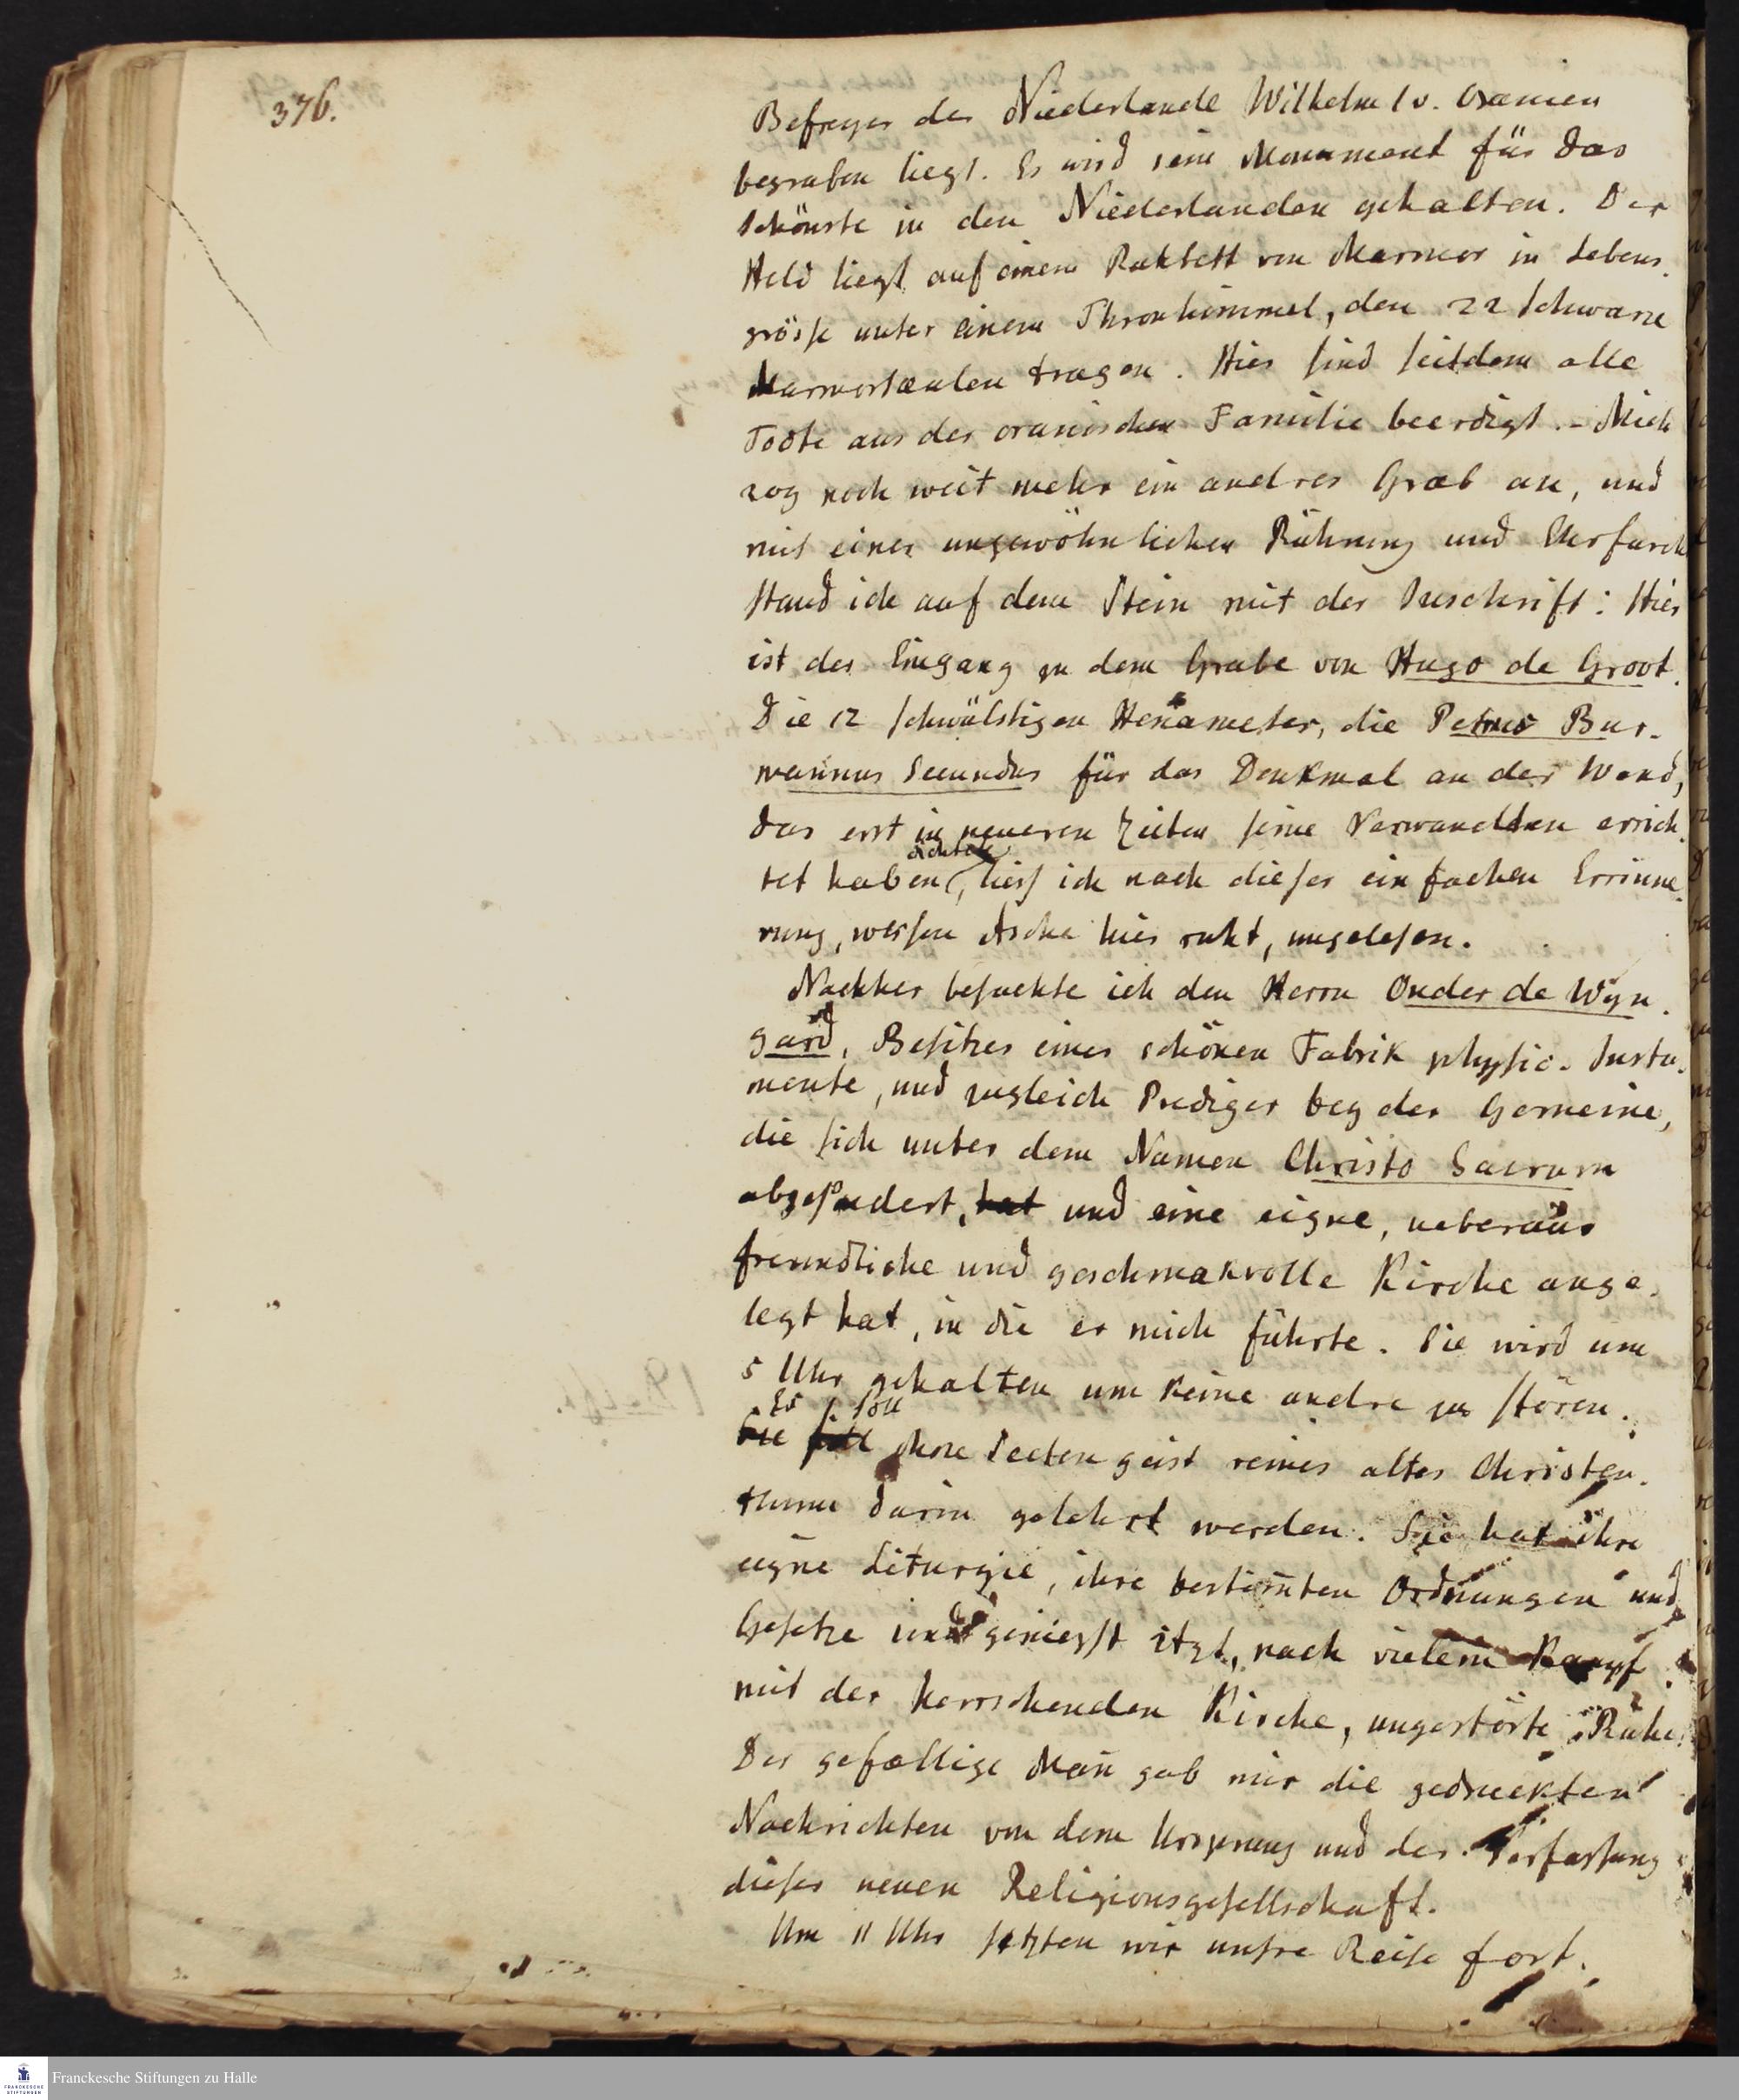 376.
Befreyer der Niederlande Wilhelm I v. Oranien
begraben liegt. Es wird sein Monument für das
schönste in den Niederlanden gehalten. Der
Held liegt auf einem Ruhbett von Marmor in Lebens-
grösse unter einem Thronhimmel, den 22 schwarze
Marmorsæulen tragen. Hier sind seitdem alle
Todte aus der oranischen Familie beerdigt. - Mich
zog noch weit mehr ein andres Grab an, und
mit einer ungewöhnlichen Rührung und Ehrfurcht
stand ich auf dem Stein mit der Inschrift: Hier
ist der Eingang zu dem Grabe von Hugo de Groot.
Die 12 schwülstigen Hexameter, die Petrus Bur-
mannus Secundus für das Denkmal an der Wand,
das erst in neueren Zeiten seine Verwandten errich-
dichtete
tet haben, liess ich nach dieser einfachen Errinne-
rung, wessen Asche hier ruht, ungelesen.
Nachher besuchte ich den Herrn Onder de Wyn-
gard, Besitzer einer schönen Fabrik physic. Instru-
mente, und zugleich Prediger bey der Gemeine,
die sich unter dem Namen Christo Sacrum
abgesondert, hat und eine eigne, ueberaus
freundliche und geschmakvolle Kirche ange-
legt hat, in die er mich führte. Sie wird um
5 Uhr gehalten um keine andre zu stören.
Es soll
Sie soll ohne Sectengeist reines altes Christen-
thum darin gelehrt werden. Sie hat ihre
eigne Liturgie, ihre bestim̄ten Ordnungen und
Gesetze und geniesst itzt, nach vielem Kampf
mit der herrschenden Kirche, ungestörte Ruhe.
Der gefællige Man̄ gab mir die gedruckten
Nachrichten von dem Ursprung und der Verfassung
dieser neuen Religionsgesellschaft.
Um 11 Uhr setzten wir unsre Reise fort.
Franckesche Stiftungen zu Halle
FRANCKESCHE
STIFTUNGEN